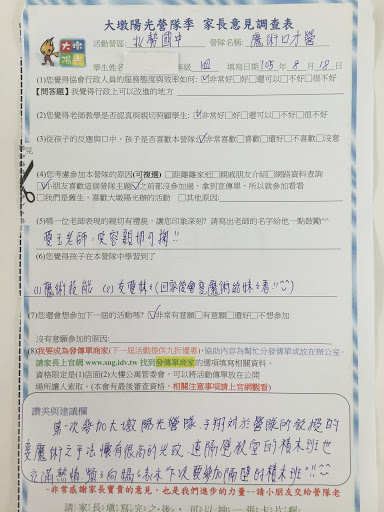 大墩陽光營隊季 家長意見調查表
大墩
陽光
活動營區: 北勢國中 營隊名稱: 魔術口才營
學生姓名 班級 四 填寫日期 105 年 8 月 18 日
(1)您覺得協會行政人員的服務態度與效率如何: ☑非常好□好□還可以□不好□很不好
【問答題】我覺得行政上可以改進的地方
(2)您覺得老師教學是否認真與親切照顧學生: ☑非常好□好□還可以□不好□很不好
(3)從孩子的反應與口中，孩子是否喜歡本營隊:☑非常喜歡□喜歡□還好□不喜歡□沒意見
(4)您考慮參加本營隊的原因(可複選) □距離離家近□親戚朋友介紹□網路資料查詢
☑小朋友喜歡這個營隊主題☑之前都沒參加過，拿到宣傳單，所以就參加看看
□我們是舊生，喜歡大墩陽光辦的活動 □其他原因:
(5)哪一位老師表現的親切有禮貌，讓您印象深刻? 請寫出老師的名字給他一點鼓勵~~
(6)您覺得孩子在本營隊中學習到了
(1) 魔術技能
(7)您還會想參加下一屆的活動嗎? ☑非常有意願□有意願□還好□不想參加
沒有意願參加的原因:
(8)我要成為發傳單商家(下一屆活動提供九折優惠)，協助內容為幫忙分發傳單或放在辦公室，
請家長上官網 www.sng.idv.tw 找到發傳單商家的選項填寫相關資料。
資格限定是(1)店面(2)大樓公寓管委會，可以將活動傳單放在公開
場所讓人索取，(本會有最後審查資格，相關注意事項請上官網觀看)
讚美與建議欄
第一次參加大墩陽光營隊，子翔對於營隊所教授的
魔術之手法懷有很高的
充滿熱情 下次要參加隔壁的積木班!!
~非常感謝家長寶貴的意見，也是我們進步的力量~~請小朋友交給營隊老
請家長填寫完之後，可以抽一張卡片喔